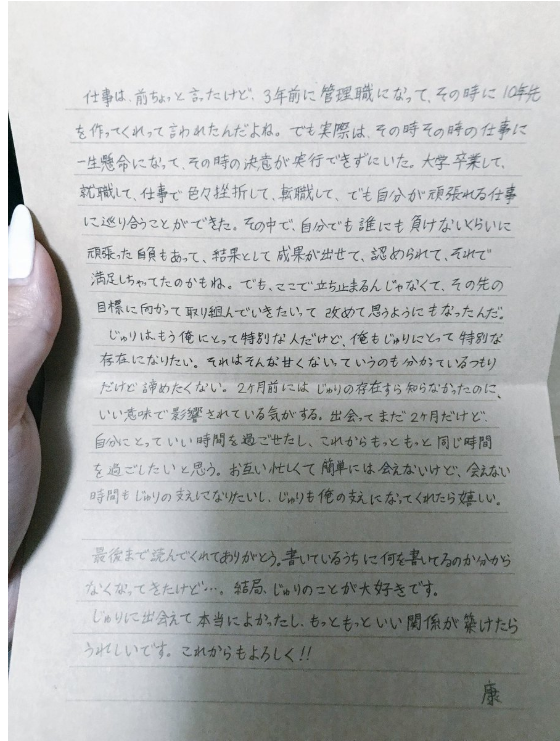 仕事は、前ちょっと言ったけど、3年前に管理職になって、その時に10年先
を作ってくれって言われたんだよね。でも実際は、その時その時の仕事に
一生懸命になって、その時の決意が実行できずにいた。大学卒業して、
就職して、仕事で色々挫折して、転職して、でも自分が頑張れる仕事
に巡り合うことができた。その中で、自分でも誰にも負けないくらいに
頑張った自負もあって、結果として成果が出せて、認められて、それで
満足しちゃてたのかもね。でも、ここで立ち止まるんじゃなくて、その先の
目標に向かって取り組んでいきたいって改めて思うようにもなったんだ。
じゅりはもう俺にとって特別な人だけど、俺もじゅりにとって特別な
存在になりたい。それはそんな甘くないっていうのも分かっているつもり
だけど諦めたくない。2ヶ月前にはじゅりの存在すら知らなかったのに、
いい意味で影響されている気がする。出会ってまだ2ヶ月だけど、
自分にとっていい時間を過ごせたし、これからもっともっと同じ時間
を過ごしたいと思う。お互い忙しくて簡単には会えないけど、会えない
時間もじゅりの支えになりたいし、じゅりも俺の支えになってくれたら嬉しい。
最後まで読んでくれてありがとう。書いているうちに何を書いてるのか分から
なくなってきたけど…。結局、じゅりのことが大好きです。
じゅりに出会えて本当によかったし、もっともっといい関係が築けたら
うれしいです。これからもよろしく!!
康